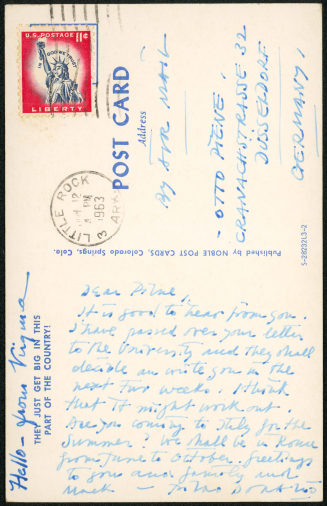 U.S. POSTAGE 11¢
IN GOD WE TRUST
LIBERTY
LITTLE ROCK
ARK
PM
1963
3
POST CARD
Address
By AIR MAIL
- OTTO PIENE -
CRANACHSTRASSE 32
DUSSELDORF
GERMANY
Published by NOBLE POST CARDS, Colorado Springs, Colo.
S-28232L3-2
Hallo - from Virginia
THEY JUST GET BIG IN THIS
PART OF THE COUNTRY!
Dear Piene,
It is good to hear from you.
I have passed over your letter
to the University and they shall
decide an write you in the
next two weeks. I think
that it might work out.
Are you coming to Italy for the
Summer? We shall be in Rome
from June to October. Greetings
to you and family and
Mack -